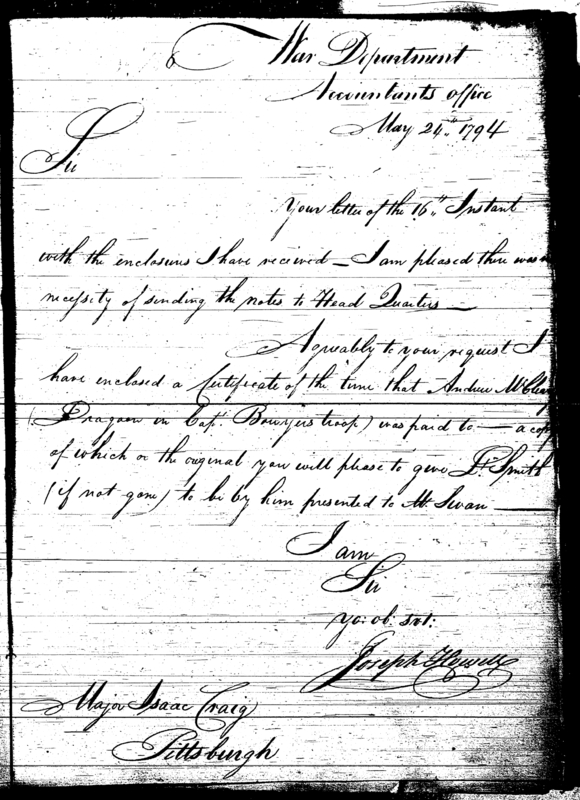 War Department
Accountants office
May 24th 1794
Sir
Your letter of the 16th Instant
with the enclosures I have received — I am pleased there was
necessity of sending the notes to Head Quarters —
Agreably to your request I
have enclosed a Certificate of the time that Andrew McCleary
(Dragoon in Capt. Bowyers troop) was paid to — a copy
of which or the original you will please to give Dr. Smith
(if not gone) to be by him presented to Mr. Swan —
I am
Sir
yo: ob: svt:
Joseph Howell
Major Isaac Craig
Pittsburgh